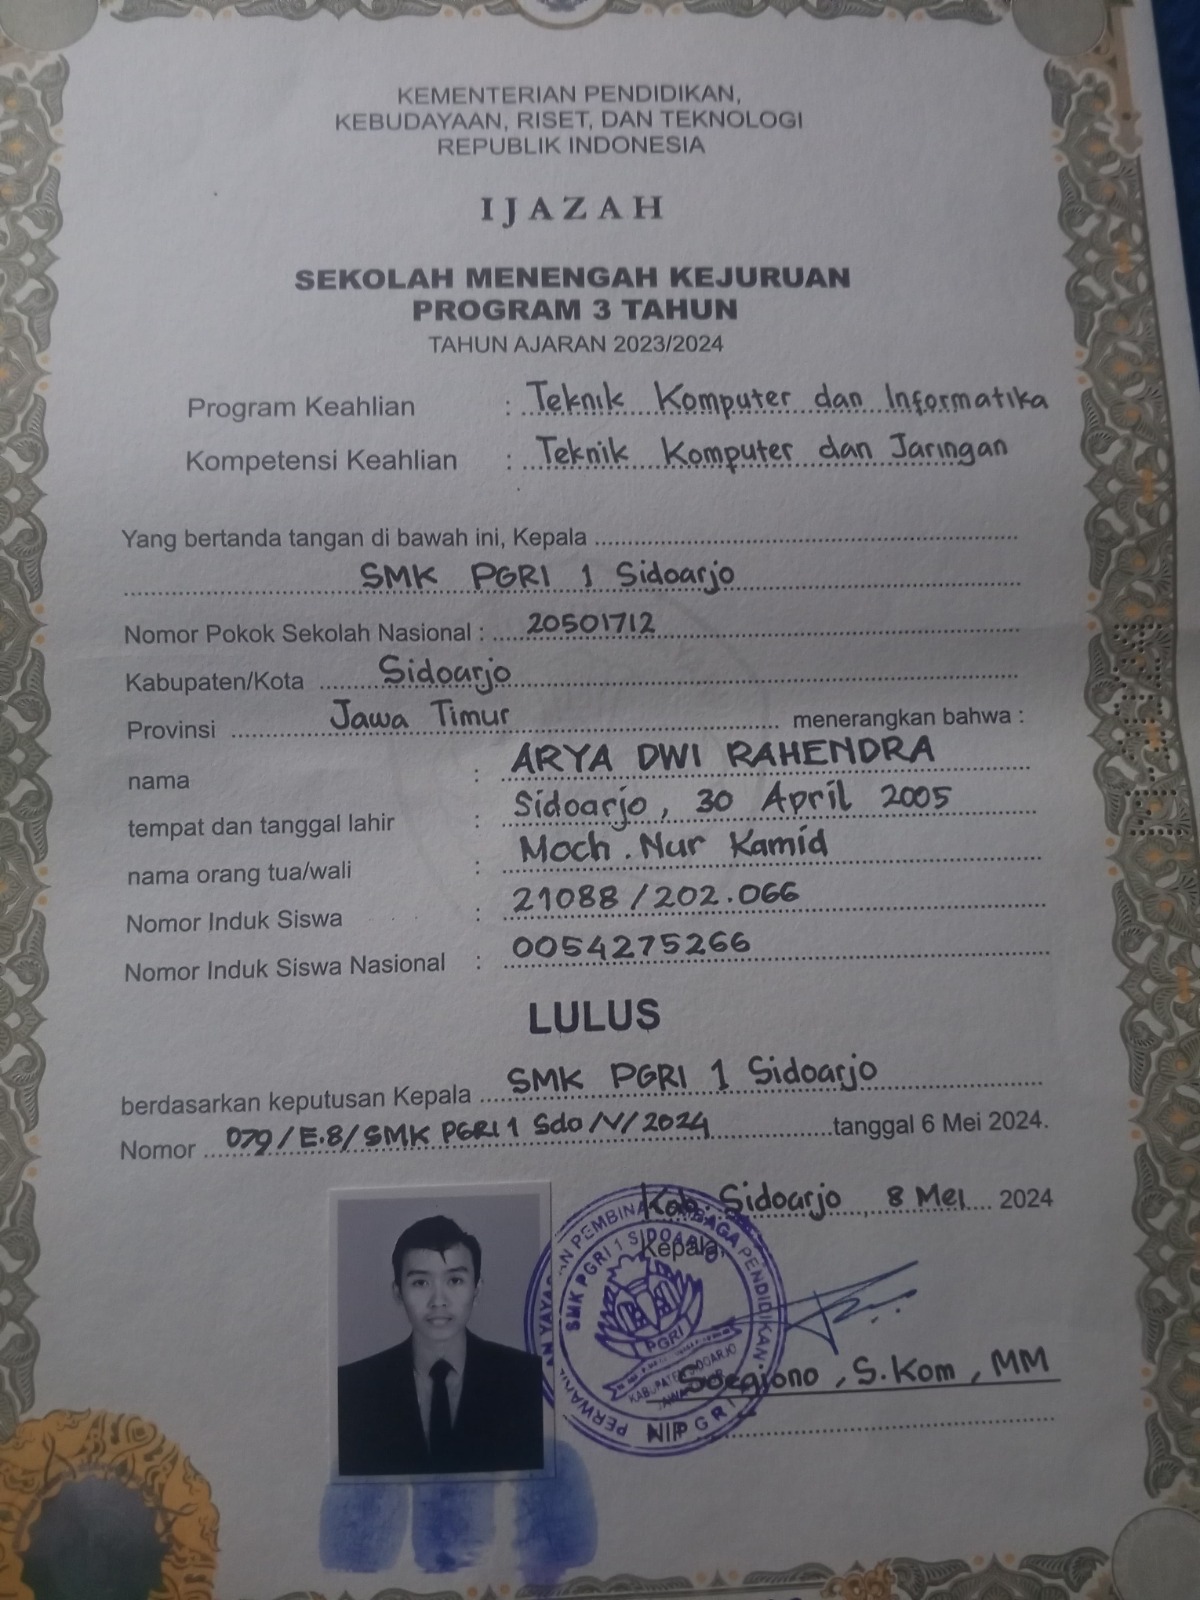 KEMENTERIAN PENDIDIKAN,
KEBUDAYAAN, RISET, DAN TEKNOLOGI
REPUBLIK INDONESIA
IJAZAH
SEKOLAH MENENGAH KEJURUAN
PROGRAM 3 TAHUN
TAHUN AJARAN 2023/2024
Program Keahlian : Teknik Komputer dan Informatika
Kompetensi Keahlian : Teknik Komputer dan Jaringan
Yang bertanda tangan di bawah ini, Kepala
SMK PGRI 1 Sidoarjo
Nomor Pokok Sekolah Nasional : 20501712
Kabupaten/Kota Sidoarjo
Provinsi Jawa Timur menerangkan bahwa :
nama : ARYA DWI RAHENDRA
tempat dan tanggal lahir : Sidoarjo, 30 April 2005
nama orang tua/wali : Moch. Nur Kamid
Nomor Induk Siswa : 21088/202.066
Nomor Induk Siswa Nasional : 0054275266
LULUS
berdasarkan keputusan Kepala SMK PGRI 1 Sidoarjo
Nomor 079/E.8/SMK PGRI 1 Sdo/V/2024 tanggal 6 Mei 2024.
Kab. Sidoarjo, 8 Mei 2024
Kepala,
SMK PGRI 1 SIDOARJO
PGRI
Soegiono, S.Kom, MM
NIP